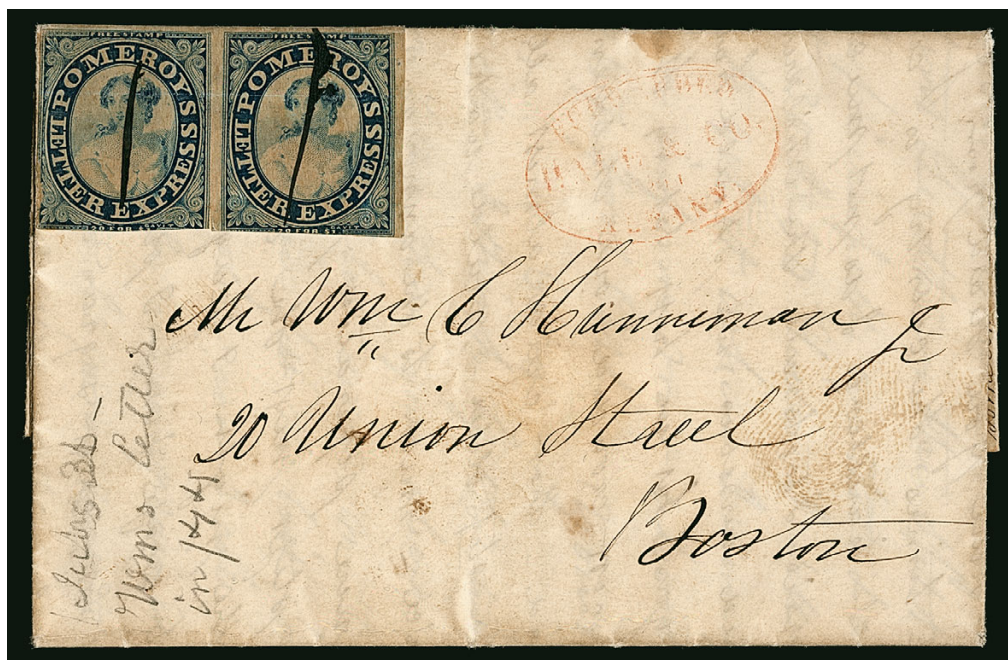 FREE STAMP
POMEROY'S
LETTER EXPRESS
20 FOR $1
FREE STAMP
POMEROY'S
LETTER EXPRESS
20 FOR $1
FORWARDED
HALE & CO.
ALBANY.
Mr Wm C Hunneman Jr
20 Union Street
Boston
Wms letter
in 1844